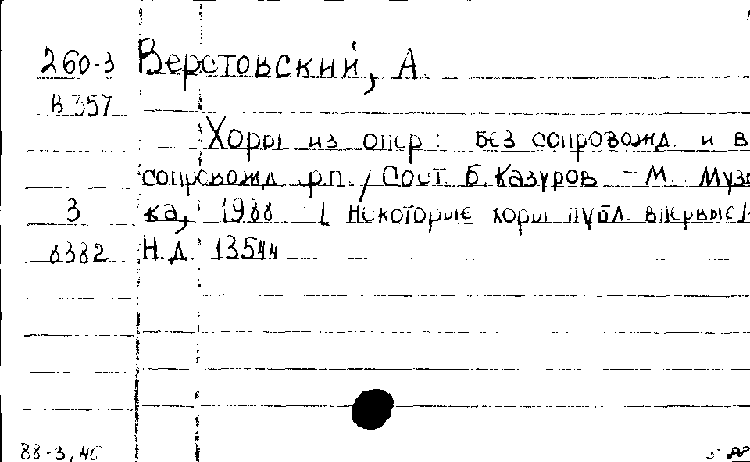 260-3 Верстовский, А.
В 357
Хоры из опер: без сопровожд. и в
сопровожд. фп. / Сост. Б. Казуров – М. Музы
3 ка, 1988 [ Некоторые хоры публ. впервые]
8382 Н.Д. 13544
88-3, 46